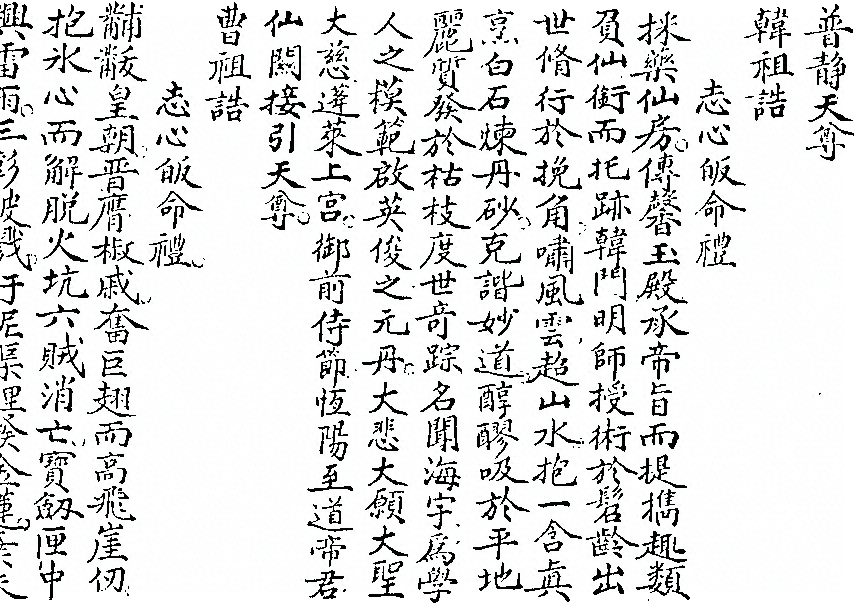 普静天尊
韓祖誥
志心皈命禮
採藥仙房。傳馨玉殿承帝旨而提攜趣類
負仙銜而托跡韓門明師授術於髫齡出
世脩行於挽角。嘯風雲、超山水。抱一含真
烹白石煉丹砂。克諧妙道。醇醪吸於平地
麗質發於枯枝度世奇踪名聞海宇。為學
人之模範啟英俊之元丹。大悲大願大聖
大慈蓬萊上宮。御前侍節。恆陽至道帝君
仙闕接引天尊。
曹祖誥
志心皈命禮。
黼黻皇朝。晋膺椒戚。奮巨翅而高飛崖仞。
抱氷心而解脫火坑六賊消亡。寶劔匣中
興雷雨。三彭